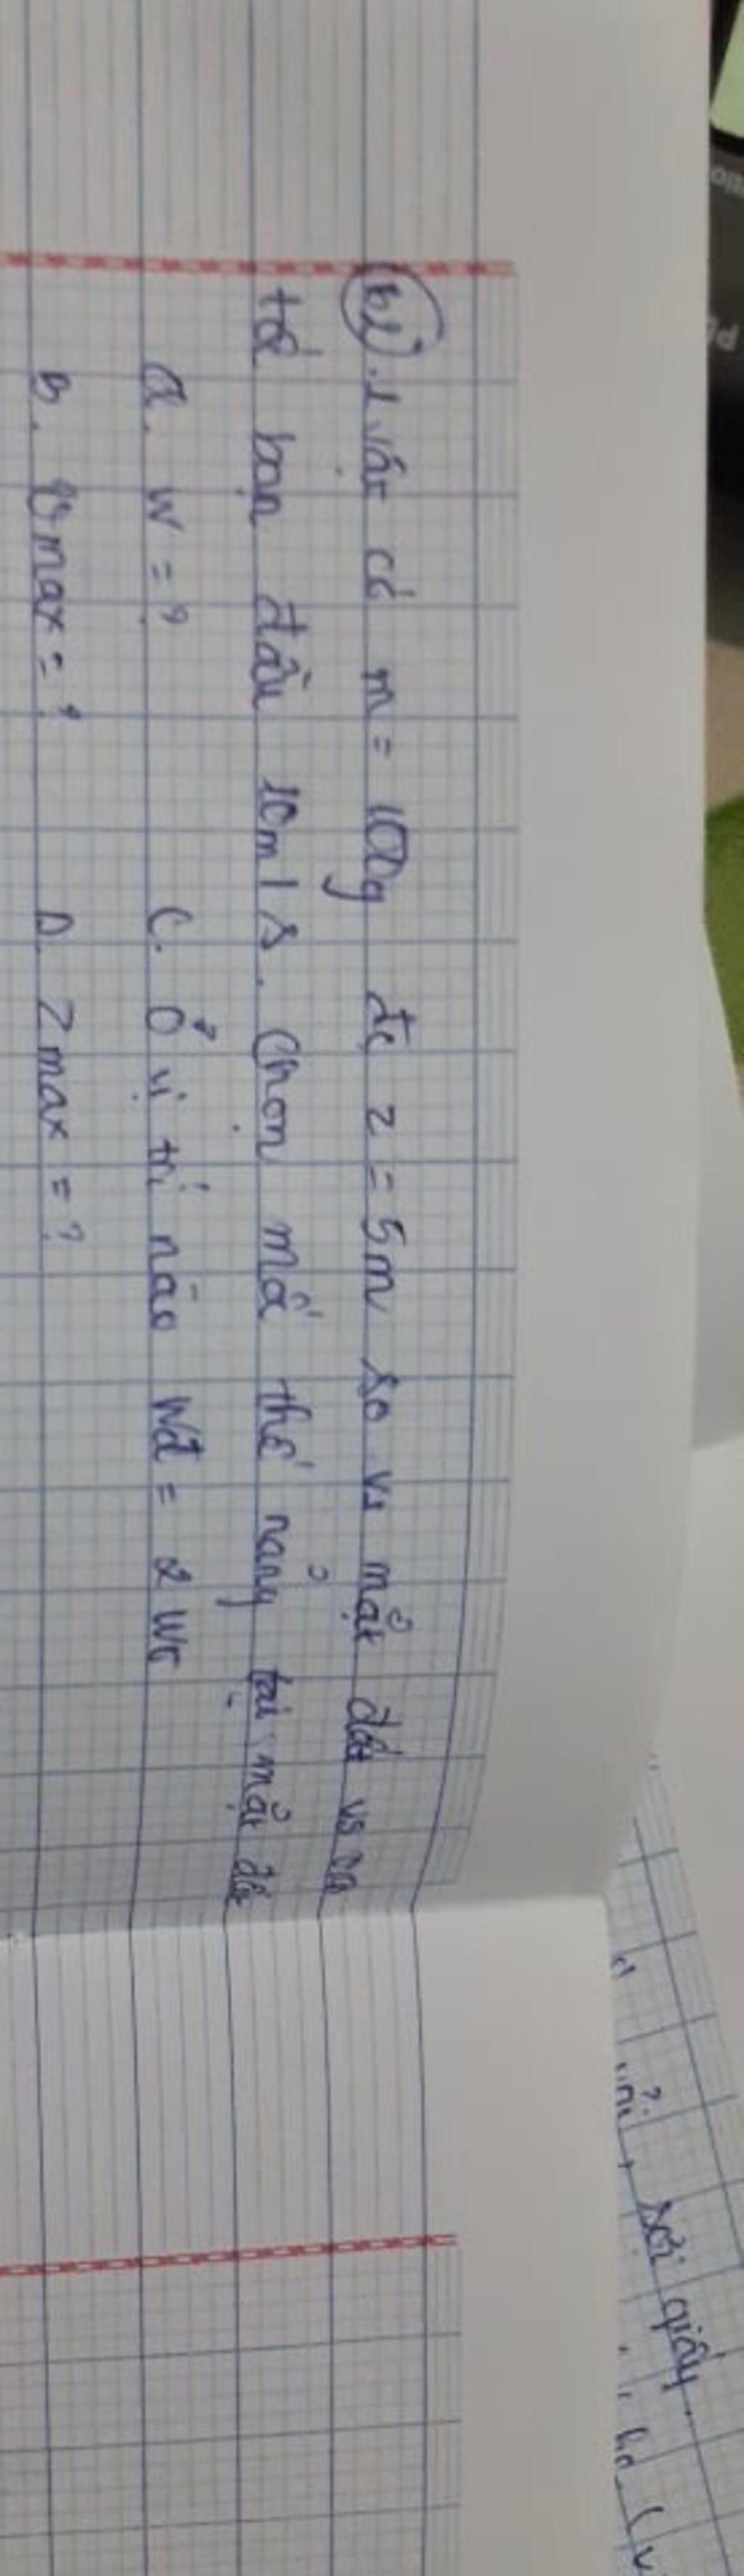 b2. 1 vật có m = 100g đc z = 5m so vs mặt đất vs
tố ban đầu 10m/s. Chọn mố thế năng tại mặt đất
a. W = ?
C. Ở vị trí nào Wđ = 2 Wt
B. vmax = ?
D. Zmax = ?
sỏi giấy